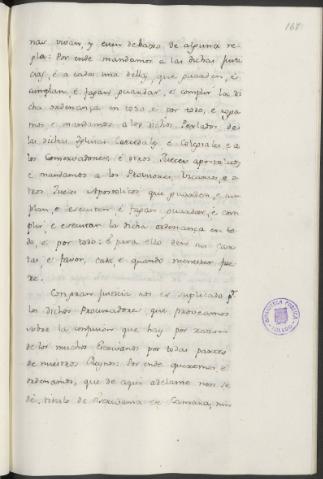 168
nas vivan, y esten debaxo de alguna re-
gla: Por ende mandamos a las dichas Justi
cias, é a cada una dellas, que guarden, é
cumplan, é fagan guardar, é complir la di
cha ordenanza en todo é por todo, é roga
mos e mandamos a los dichos Perlados, de
las dichas Iglesias Catedrales, é Colegiales, e a
los Conservadores, é otros Jueces apostolicos
e mandamos a los Provisores, Vicarios, e a
otros Jueces Apostolicos que guarden, e cum
plan, e executen, e fagan guardar, e com
plir, e executar la dicha ordenanza en to
do, e por todo: é para ello den sus car
tas e favor, cada e quando menester fue
re.
Con gran justicia nos es suplicado pr.
los dichos Procuradores, que proveamos
sobre la confusion que hay por razon
de los muchos Escrivanos por todas partes
de nuestros Reynos: Por ende queremos, e
ordenamos, que de aqui adelante non se
dé titulo de Escrivania de Camara, nin
BIBLIOTECA PUBLICA
TOLEDO